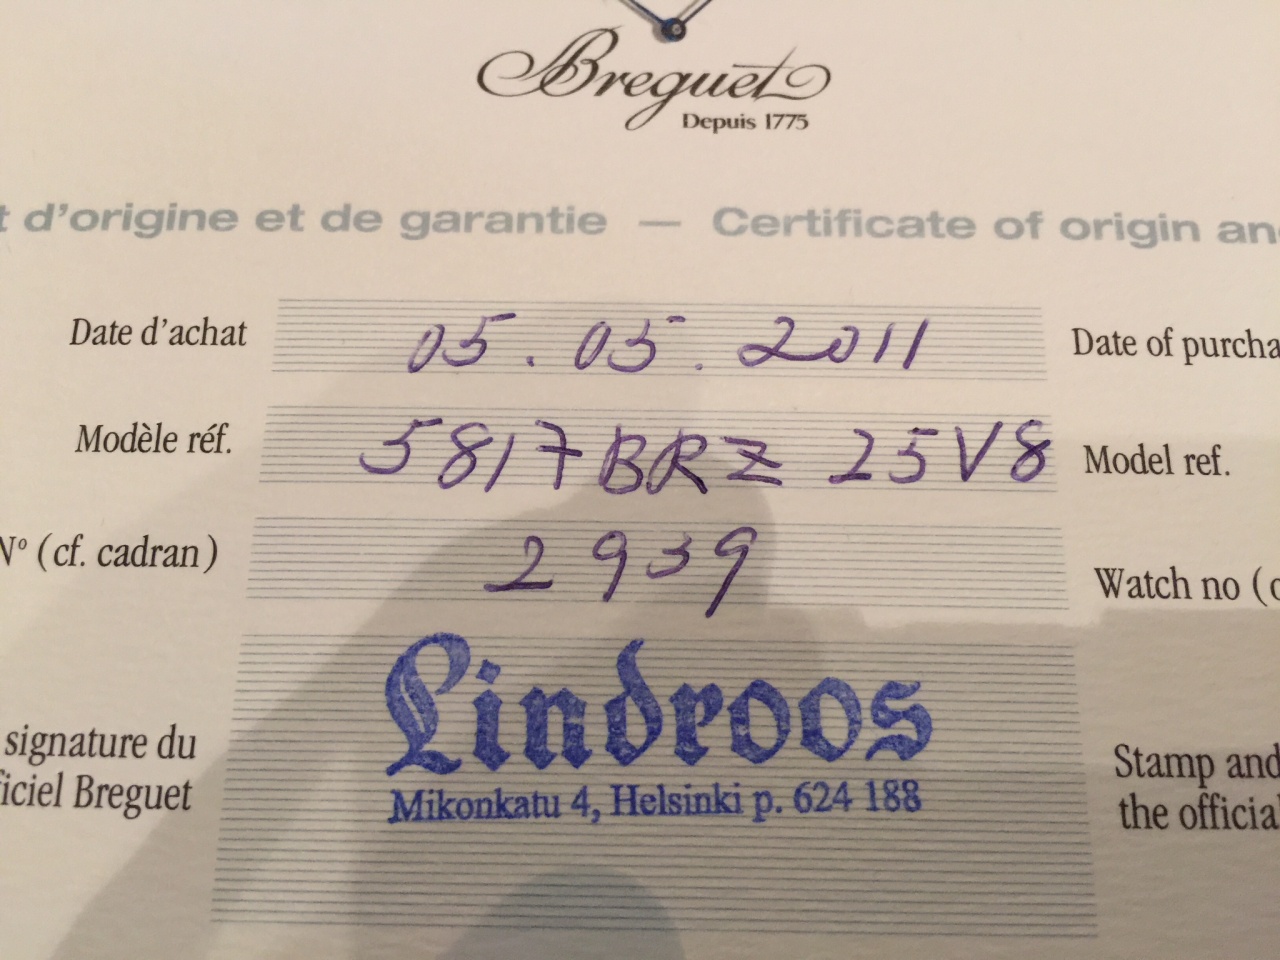 Breguet
Depuis 1775
t d'origine et de garantie — Certificate of origin an
Date d'achat 05.05.2011 Date of purcha
Modèle réf. 5817BRZ 25V8 Model ref.
N° (cf. cadran) 2939 Watch no (c
signature du
ficiel Breguet
Lindroos
Mikonkatu 4, Helsinki p. 624 188
Stamp and
the official